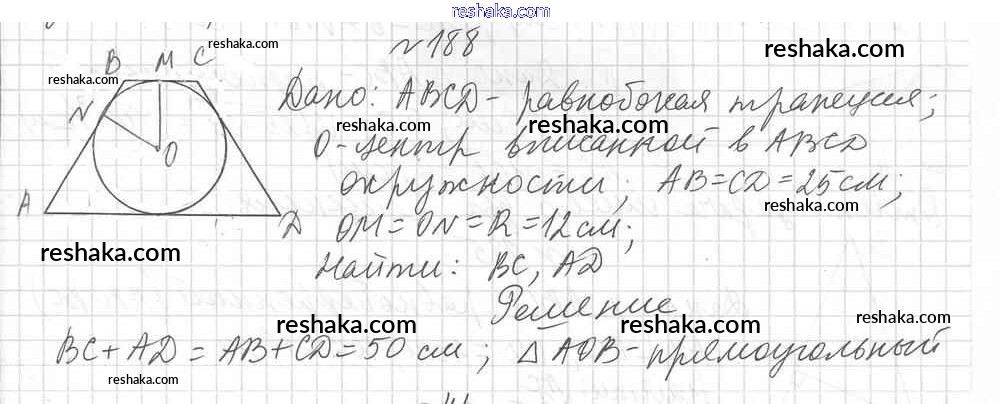 reshaka.com
№188
reshaka.com
reshaka.com
B M C
reshaka.com
N
Дано: ABCD - равнобокая трапеция;
reshaka.com
reshaka.com
O
O - центр вписанной в ABCD
окружности; AB=CD=25см;
reshaka.com
reshaka.com
A
D
OM=ON=R=12см;
reshaka.com
Найти: BC, AD
reshaka.com
Решение
reshaka.com
reshaka.com
BC+AD=AB+CD=50 см; △AOB - прямоугольный
reshaka.com